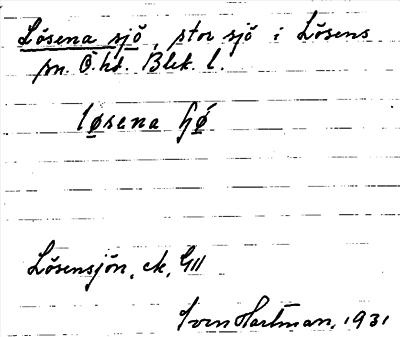 Lösena sjö, stor sjö i Lösens
sn. Ö. hd. Blek. l.
løsena hǿ
Lösensjön, ek, GII
Sven Hartman, 1931